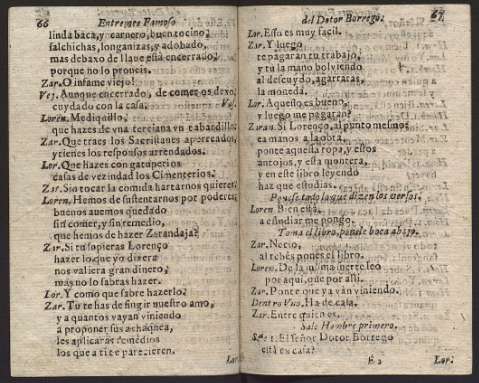 66 Entremes Famoso
linda baca, y carnero, buen tocino,
salchichas, longanizas, y adobado,
mas debaxo de llaue està encerrado;
porque no lo proueis.
Zar. O infame viejo!
Vej. Aunque encerrado, de comer os dexo,
cuydado con la casa. Vas.
Loren. Mediquillo,
que hazes de vna terciana vn tabardillo.
Zar. Que traes los Sacristanes apercados,
y tienes los responsos arrendados.
Lor. Que hazes con gatuperios
casas de vezindad los Cimenterios.
Zar. Sin tocar la comida hartarnos quieren
Loren. Hemos de sustentarnos por poderes,
buenos auemos quedado
sin comer, y sin remedio,
que hemos de hazer Zarandaja?
Zar. Si tu supieras Lorenço
hazer lo que yo dixera
nos valiera gran dinero,
mas no lo sabras hazer.
Lor. Y como que sabre hazerlo?
Zar. Tu te has de fingir nuestro amo,
y a quantos vayan viniendo
a proponer sus achaques,
les aplicaras remedios
los que a ti te parecieren.
Lor.
del Dotor Borrego. 67
Lor. Esso es muy facil.
Zar. Y luego
te pagaràn tu trabajo,
y tu la mano bolviendo
al descuydo, agarraras
la moneda.
Lor. Aquesto es bueno,
y luego me pagaràn?
Zaran. Si Lorenço, al punto mesmo;
ea manos a la obra,
ponte aquesta ropa, y estos
antojos, y esta montera,
y en este libro leyendo
haz que estudias.
Ponese todo lo que dizen los versos.
Loren. Bien està,
a estudiar me pongo.
Toma el libro, ponele boca abajo.
Zar. Necio,
al rebès pones el libro.
Loren. De la misma suerte leo
por aqui, que por alli.
Zar. Ponte que ya van viniendo.
Dentro Vno. Ha de casa.
Zar. Entre quien es.
Sale Hombre primero.
1. El señor Dotor Borrego
està en casa?
E 2 Lor.